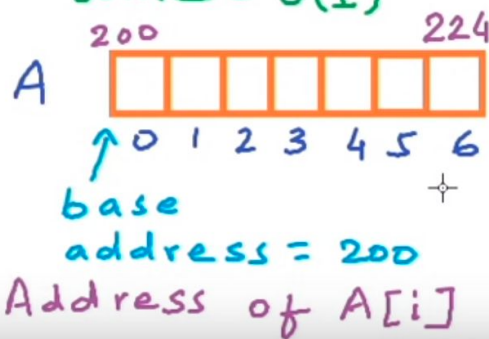 200 224
A
0 1 2 3 4 5 6
base
address = 200
Address of A[i]